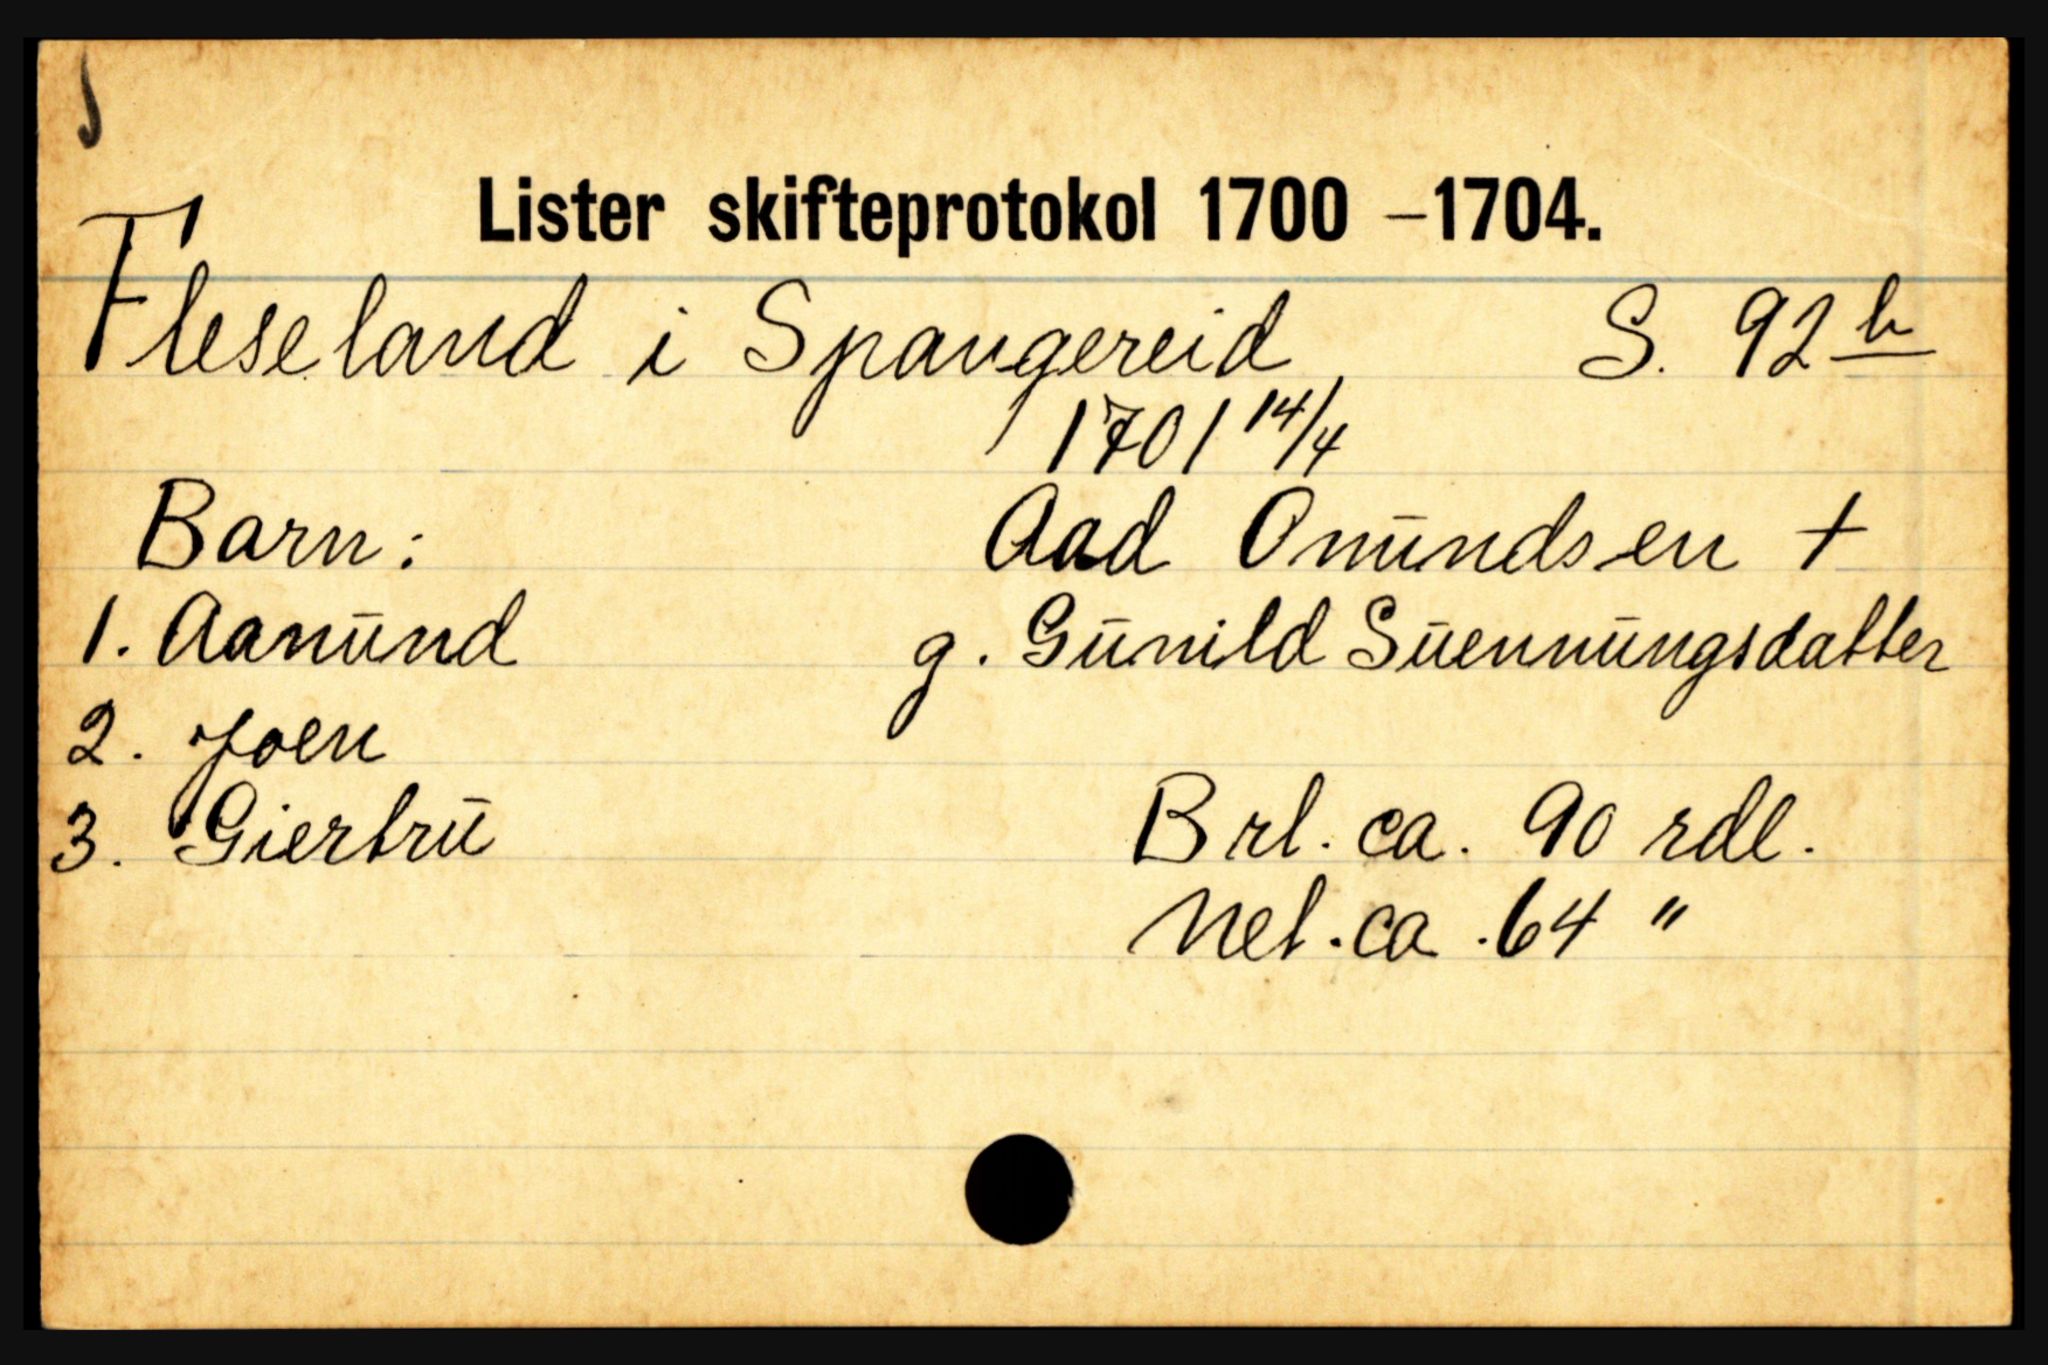 Lister skifteprotokol 1700 – 1704.
Fleseland i Spangereid S. 92 b
1701 14/4
Barn: Aad Onundsen +
1. Aanund g. Gunild Suennungsdatter
2. Joen
3. Giertru Brt. ca. 90 rdl.
Net. ca. 64 "